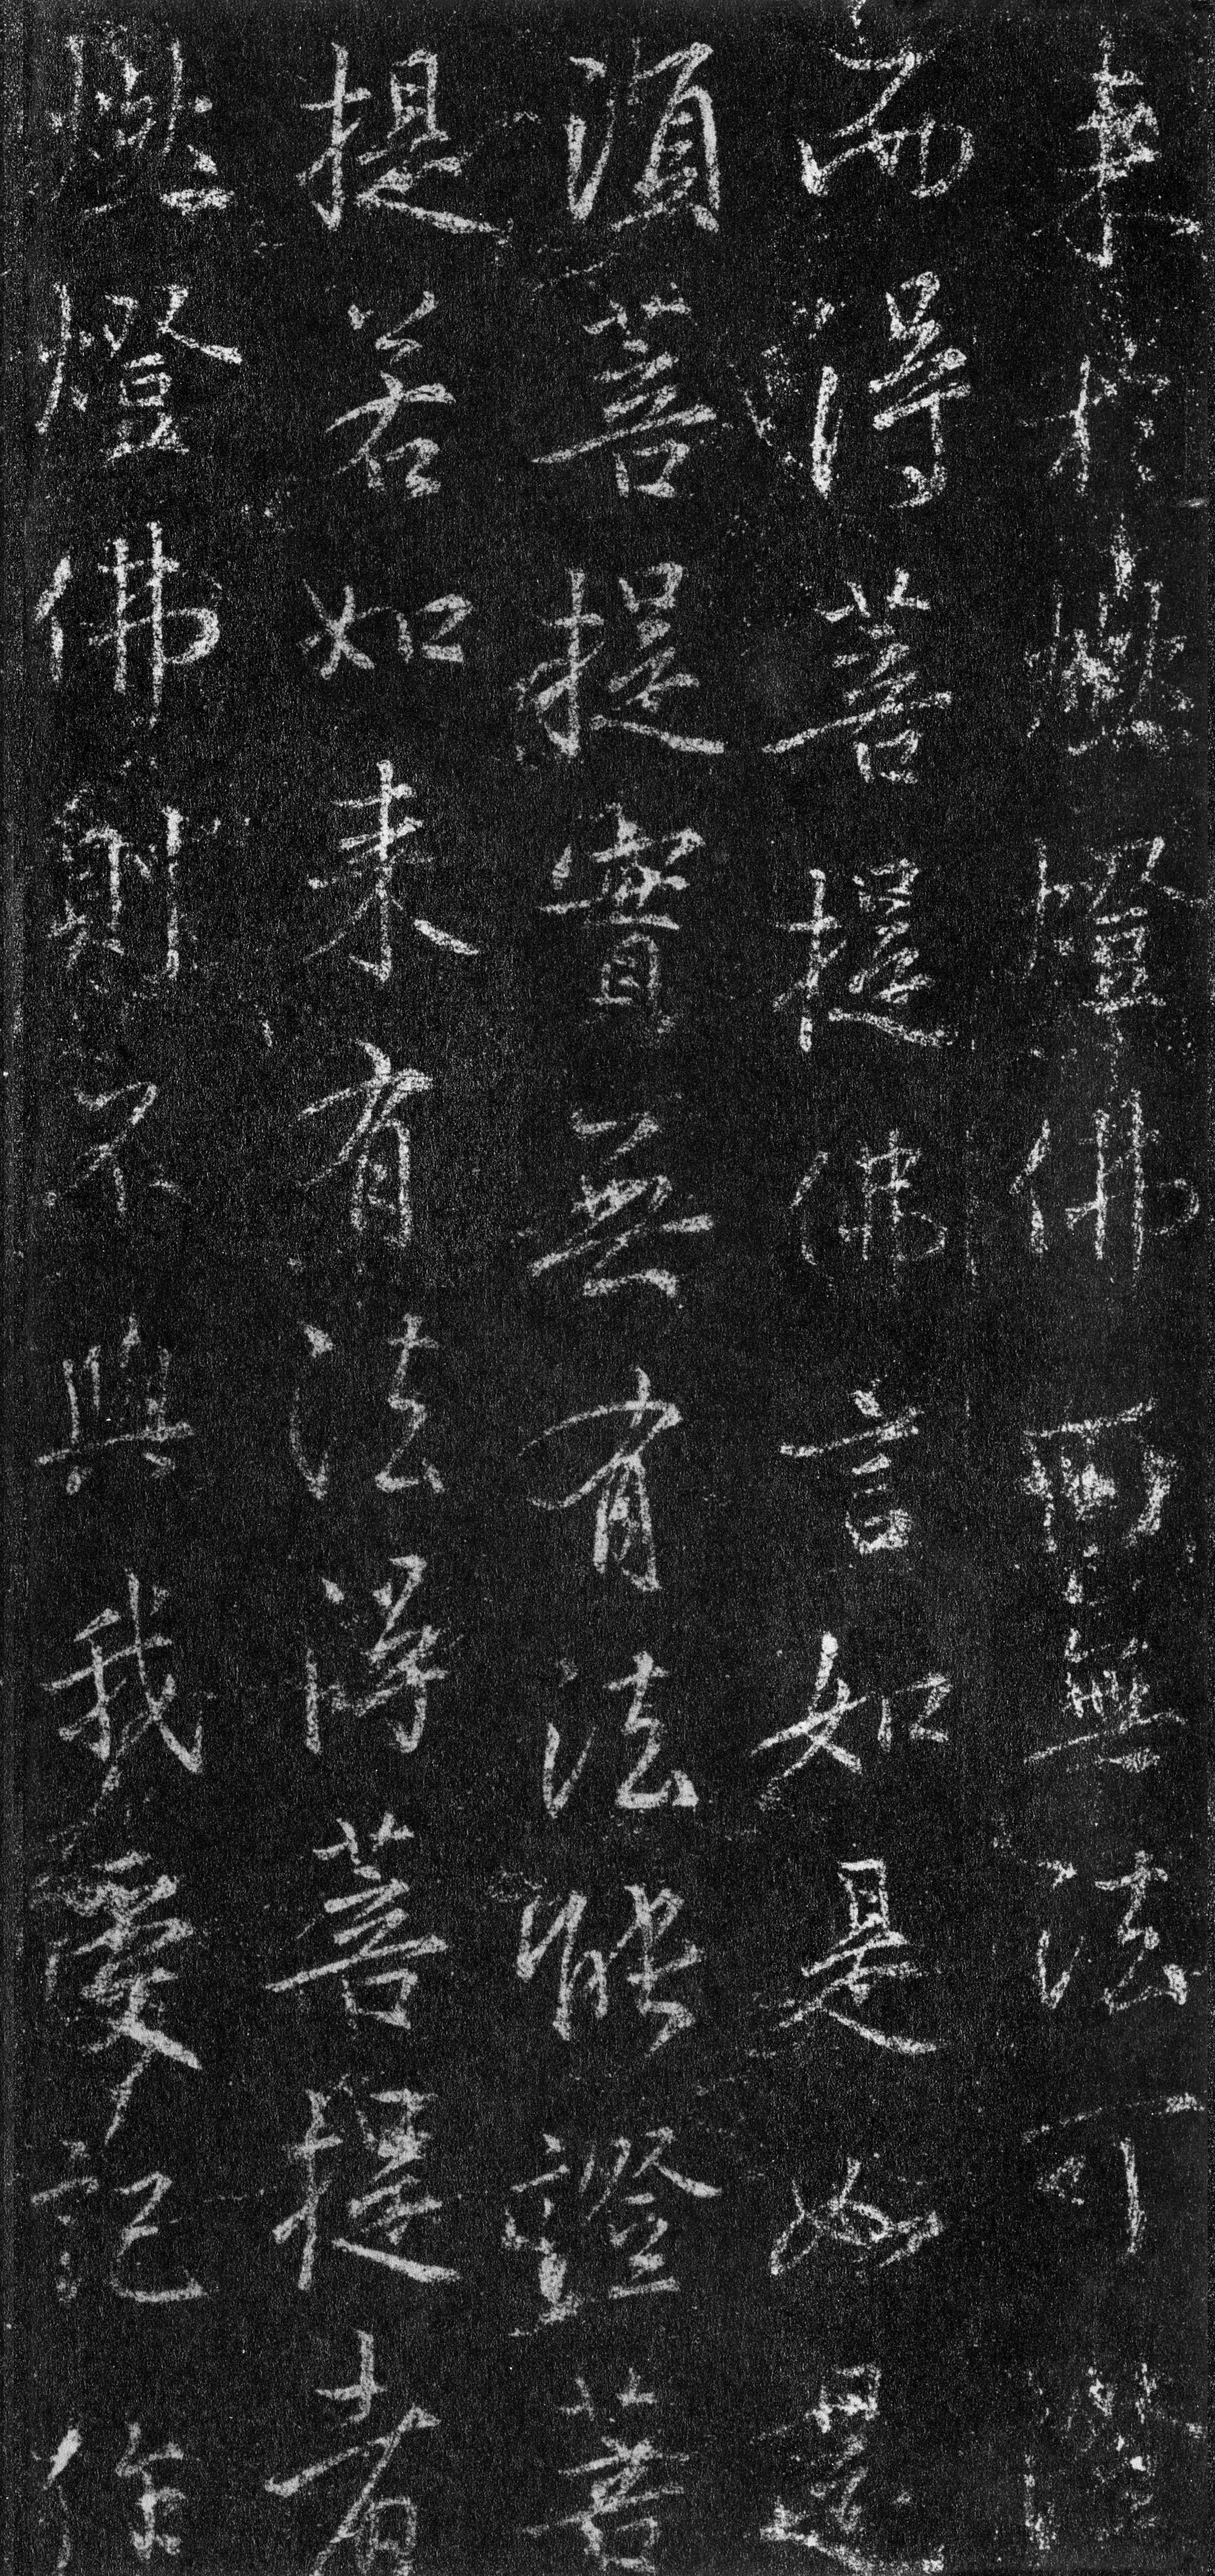 来於燃燈佛而無法可證
而得菩提佛言如是如是
須菩提實無有法能證菩
提若如来有法得菩提者
燃燈佛則不與我受記作